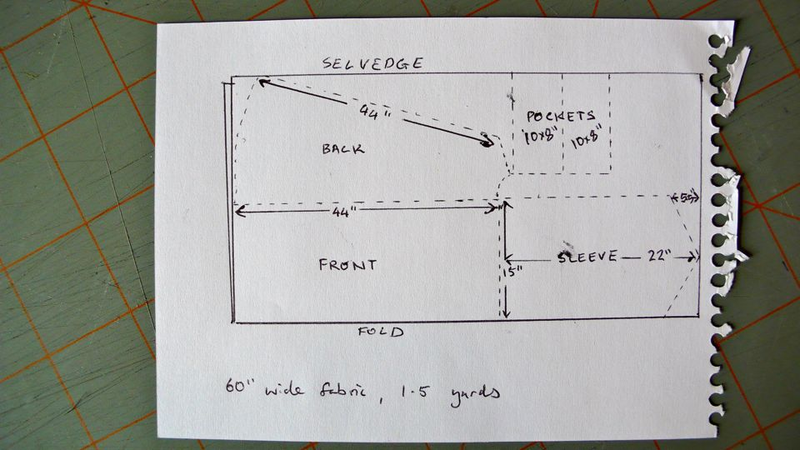 SELVEDGE
44"
POCKETS
10x8"
10x8"
BACK
44"
5.5"
FRONT
15"
SLEEVE 22"
FOLD
60" wide fabric, 1.5 yards